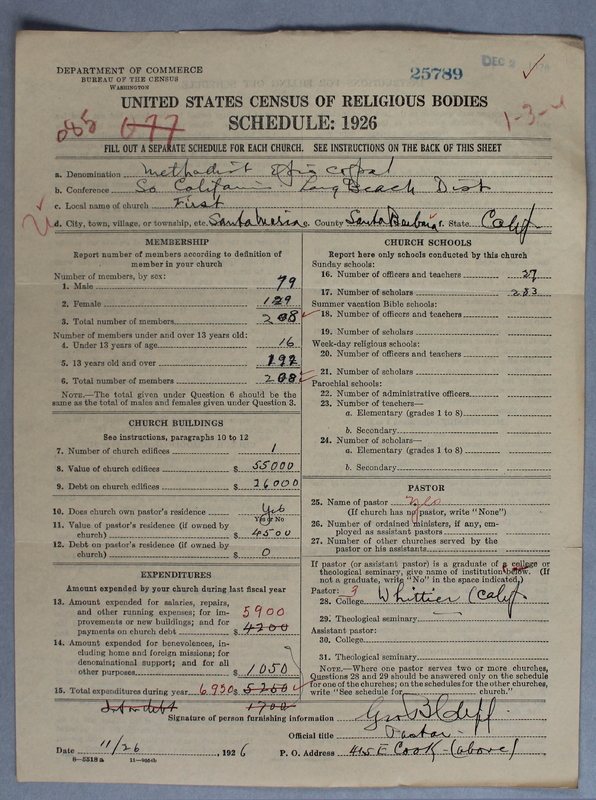 DEPARTMENT OF COMMERCE
BUREAU OF THE CENSUS
WASHINGTON
25789
DEC 2
UNITED STATES CENSUS OF RELIGIOUS BODIES
SCHEDULE: 1926
085 077
1-3-4
FILL OUT A SEPARATE SCHEDULE FOR EACH CHURCH. SEE INSTRUCTIONS ON THE BACK OF THIS SHEET
a. Denomination Methodist Episcopal
b. Conference So California Long Beach Dist
c. Local name of church First
d. City, town, village, or township, etc. Santa Maria e. County Santa Barbara f. State Calif
MEMBERSHIP
Report number of members according to definition of
member in your church
Number of members, by sex:
1. Male 79
2. Female 129
3. Total number of members 208
Number of members under and over 13 years old:
4. Under 13 years of age 16
5. 13 years old and over 192
6. Total number of members 208
NOTE.—The total given under Question 6 should be the
same as the total of males and females given under Question 3.
CHURCH BUILDINGS
See instructions, paragraphs 10 to 12
7. Number of church edifices 1
8. Value of church edifices $ 55000
9. Debt on church edifices $ 26000
10. Does church own pastor's residence Yes
Yes or No
11. Value of pastor's residence (if owned by
church) $ 4500
12. Debt on pastor's residence (if owned by
church) $ 0
EXPENDITURES
Amount expended by your church during last fiscal year
13. Amount expended for salaries, repairs,
and other running expenses; for im-
provements or new buildings; and for
payments on church debt $ 5900 4200
14. Amount expended for benevolences, in-
cluding home and foreign missions; for
denominational support; and for all
other purposes $ 1050
15. Total expenditures during year 6950 $ 5250
Int on debt 1700
CHURCH SCHOOLS
Report here only schools conducted by this church
Sunday schools:
16. Number of officers and teachers 27
17. Number of scholars 233
Summer vacation Bible schools:
18. Number of officers and teachers
19. Number of scholars
Week-day religious schools:
20. Number of officers and teachers
21. Number of scholars
Parochial schools:
22. Number of administrative officers
23. Number of teachers—
a. Elementary (grades 1 to 8)
b. Secondary
24. Number of scholars—
a. Elementary (grades 1 to 8)
b. Secondary
PASTOR
25. Name of pastor
(If church has no pastor, write "None")
26. Number of ordained ministers, if any, em-
ployed as assistant pastors
27. Number of other churches served by the
pastor or his assistants
If pastor (or assistant pastor) is a graduate of a college or
theological seminary, give name of institution below. (If
not a graduate, write "No" in the space indicated)
Pastor: 3
28. College Whittier (Calif
29. Theological seminary
Assistant pastor:
30. College
31. Theological seminary
NOTE.—Where one pastor serves two or more churches,
Questions 28 and 29 should be answered only on the schedule
for one of the churches; on the schedules for the other churches,
write "See schedule for church."
Signature of person furnishing information Geo B Cliff
Official title Pastor
Date 11/26, 1926 P. O. Address 415 E Cook (above)
8—5518 a 11—9064b